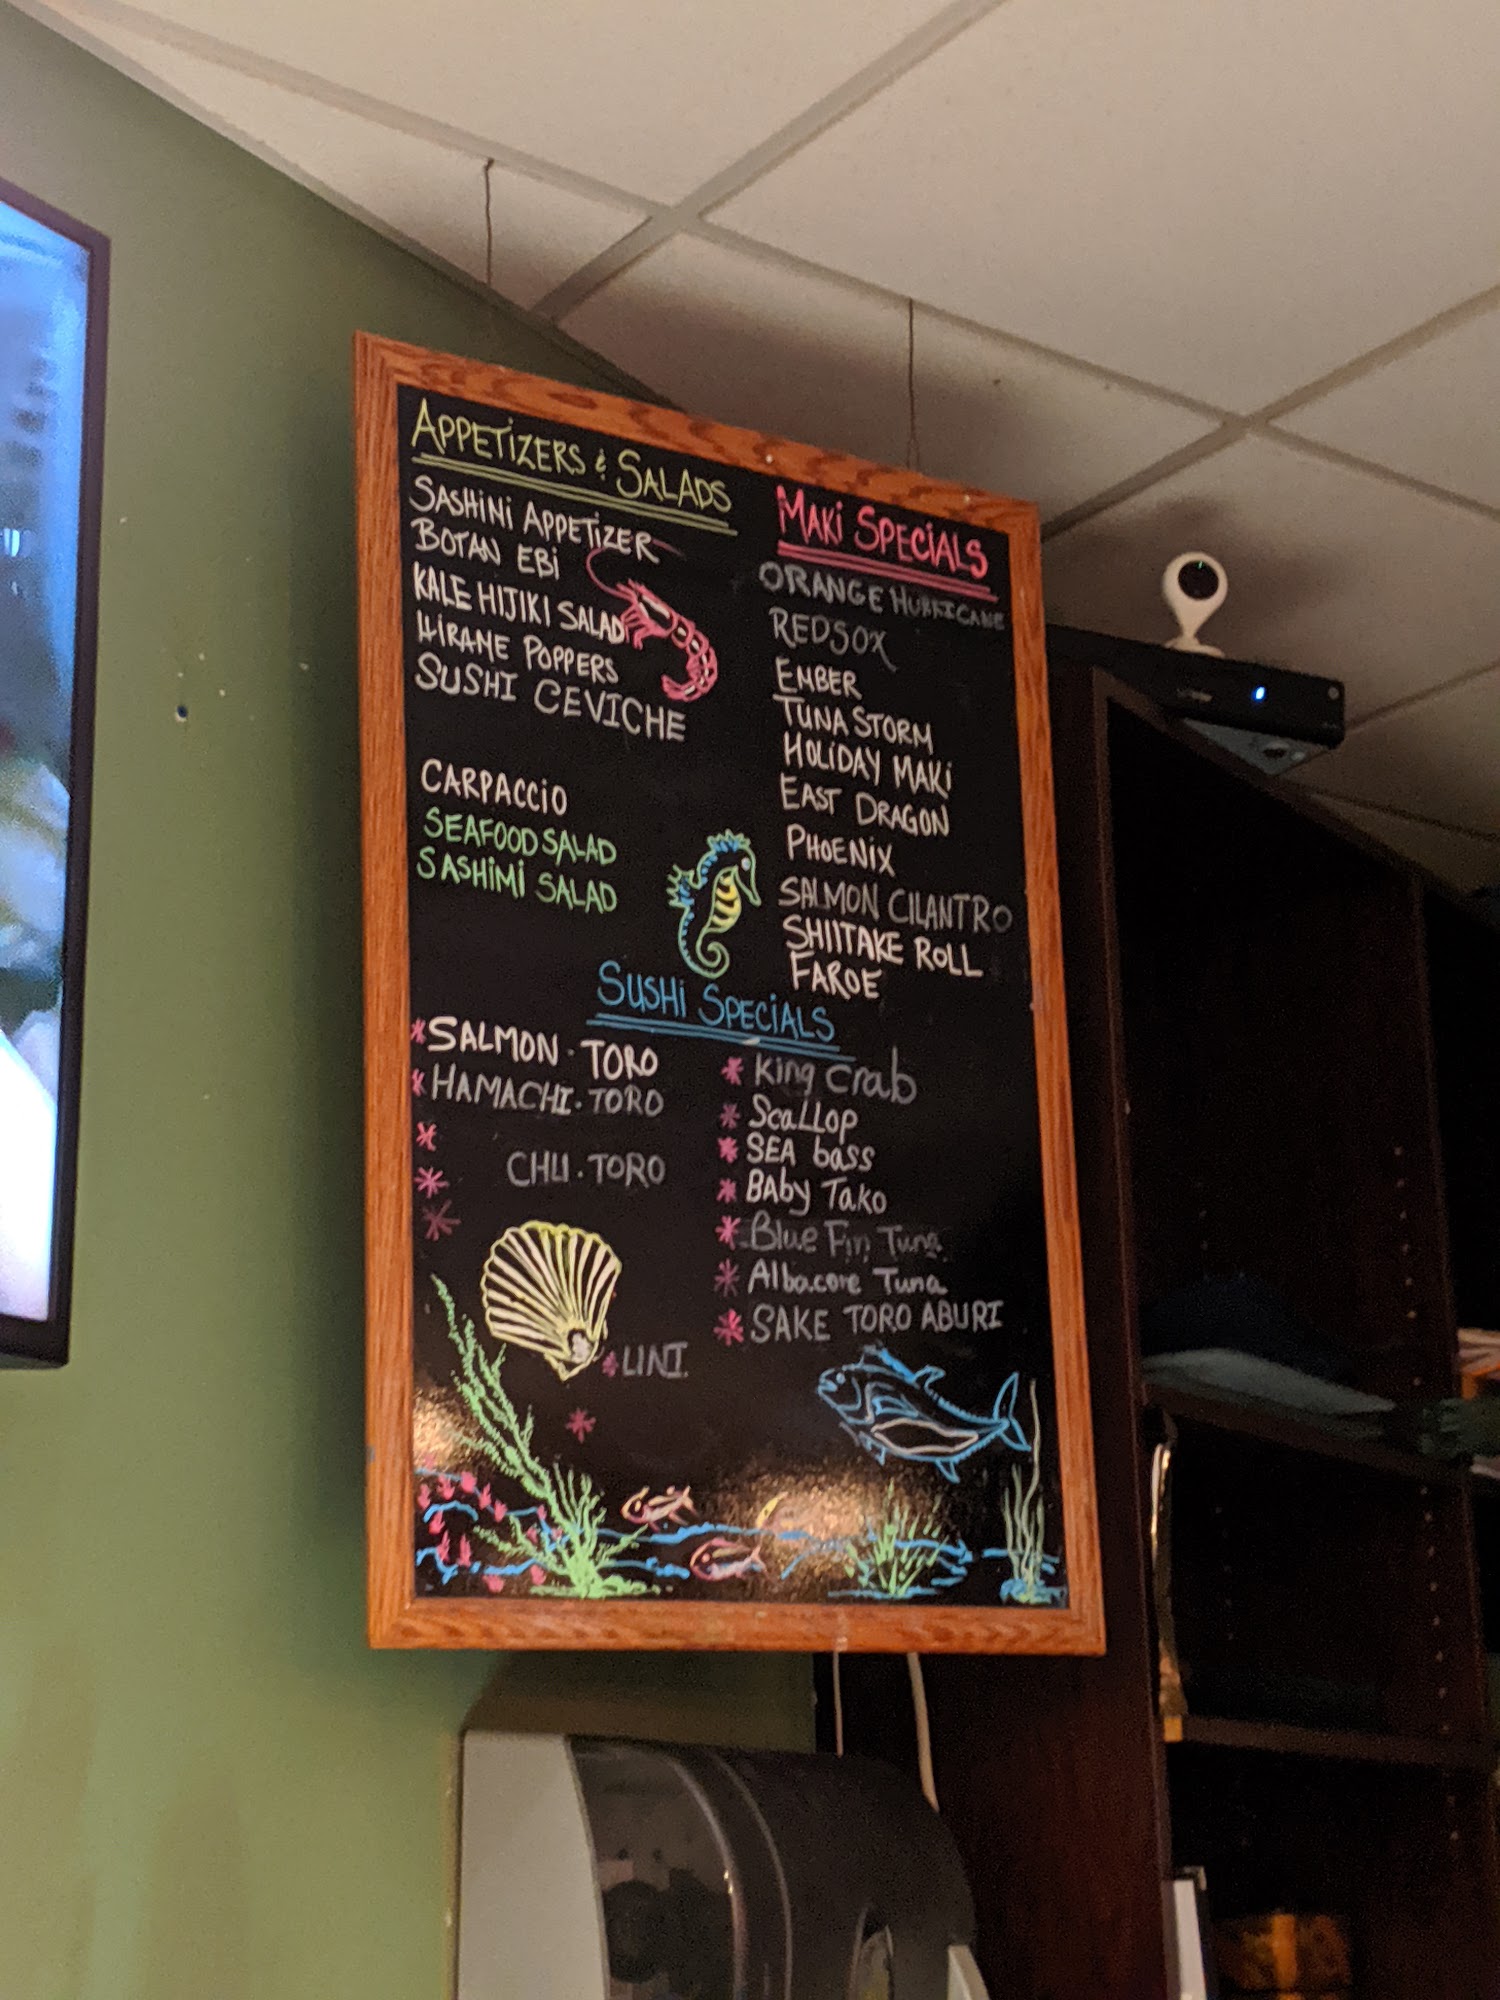 APPETIZERS & SALADS
SASHINI APPETIZER
BOTAN EBI
KALE HIJIKI SALAD
HIRAME POPPERS
SUSHI CEVICHE
CARPACCIO
SEAFOOD SALAD
SASHIMI SALAD
MAKI SPECIALS
ORANGE HURRICANE
REDSOX
EMBER
TUNA STORM
HOLIDAY MAKI
EAST DRAGON
PHOENIX
SALMON CILANTRO
SHIITAKE ROLL
FAROE
SUSHI SPECIALS
* SALMON · TORO
* HAMACHI · TORO
*
CHU · TORO
*
*
* UNI
*
* King crab
* Scallop
* SEA bass
* BAby Tako
* Blue Fin Tuna
* Albacore Tuna
* SAKE TORO ABURI